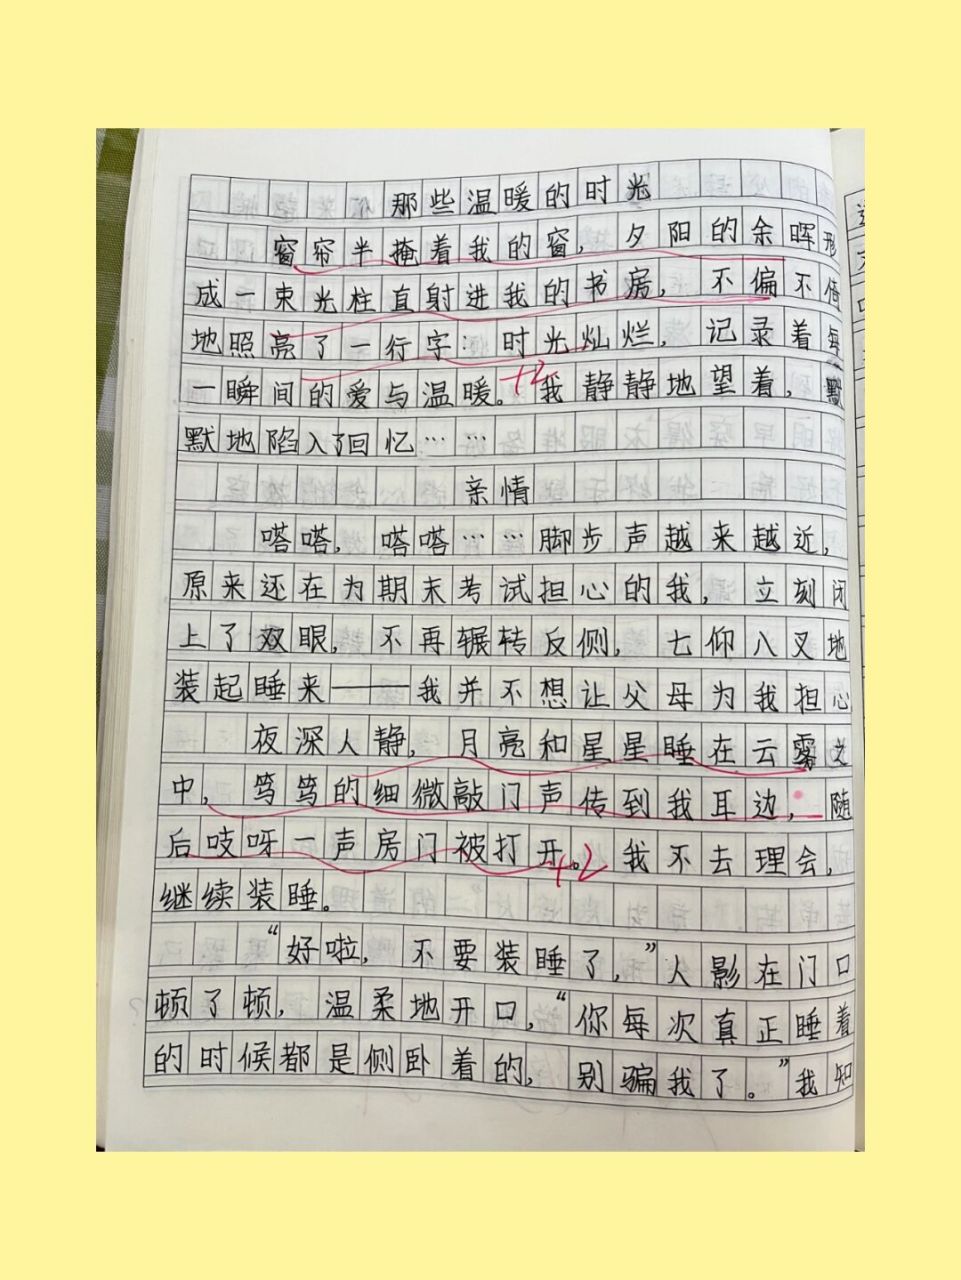 那些温暖的时光
窗帘半掩着我的窗，夕阳的余晖形
成一束光柱直射进我的书房，不偏不倚
地照亮了一行字：时光灿烂，记录着每
一瞬间的爱与温暖。+2我静静地望着，默
默地陷入了回忆……
亲情
嗒嗒，嗒嗒……脚步声越来越近，
原来还在为期末考试担心的我，立刻闭
上了双眼，不再辗转反侧，七仰八叉地
装起睡来——我并不想让父母为我担心
夜深人静，月亮和星星睡在云雾之
中，笃笃的细微敲门声传到我耳边，随
后吱呀一声房门被打开。+2我不去理会，
继续装睡。
“好啦，不要装睡了，”人影在门口
顿了顿，温柔地开口，“你每次真正睡着
的时候都是侧卧着的，别骗我了。”我知